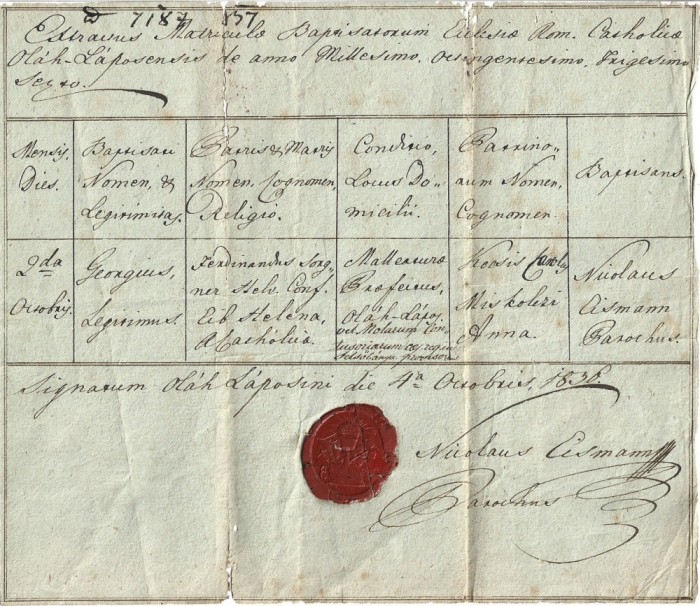 7187 857
Extractus Matriculæ Baptisatorum Eclesiæ Rom. Catholicæ
Oláh-Láposensis de anno Millesimo. Octingentesimo. Trigesimo
Sexto.
Mensis,
Dies.
Baptisati
Nomen, &
Legitimitas.
Patris & Matris
Nomen, Cognomen,
Religio.
Conditio,
Locus Do-
micilii.
Patrino-
rum Nomen,
Cognomen.
Baptisans.
2da
Octobris.
Georgius,
Legitimus.
Ferdinandus Sorg-
ner Helv. Conf.
Eib Helena,
A Cathólica.
Præfectus,
Oláh-Lápos
vel Molarum
Kocsis Caroly
Miskolczi
Anna.
Nicolaus
Eismann
Parochus.
Signatum Oláh Láposini die 4a Octobris, 1836.
Nicolaus Eismann
Parochus